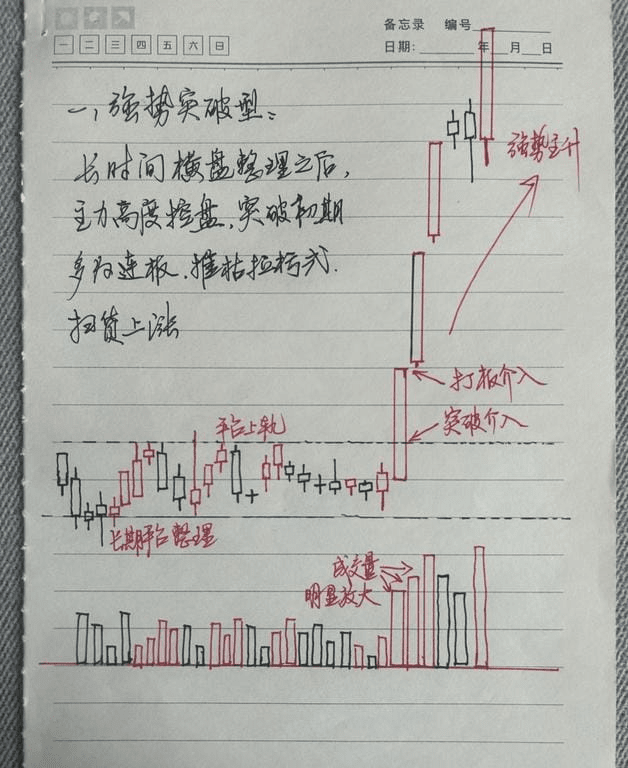 备忘录 编号
一 二 三 四 五 六 日
日期: 年 月 日
一、强势突破型：
长时间横盘整理之后，
主力高度控盘，突破初期
多为连板，摧枯拉朽式.
扫货上涨
强势主升
打板介入
突破介入
平台上轨
长期平台整理
成交量
明显放大